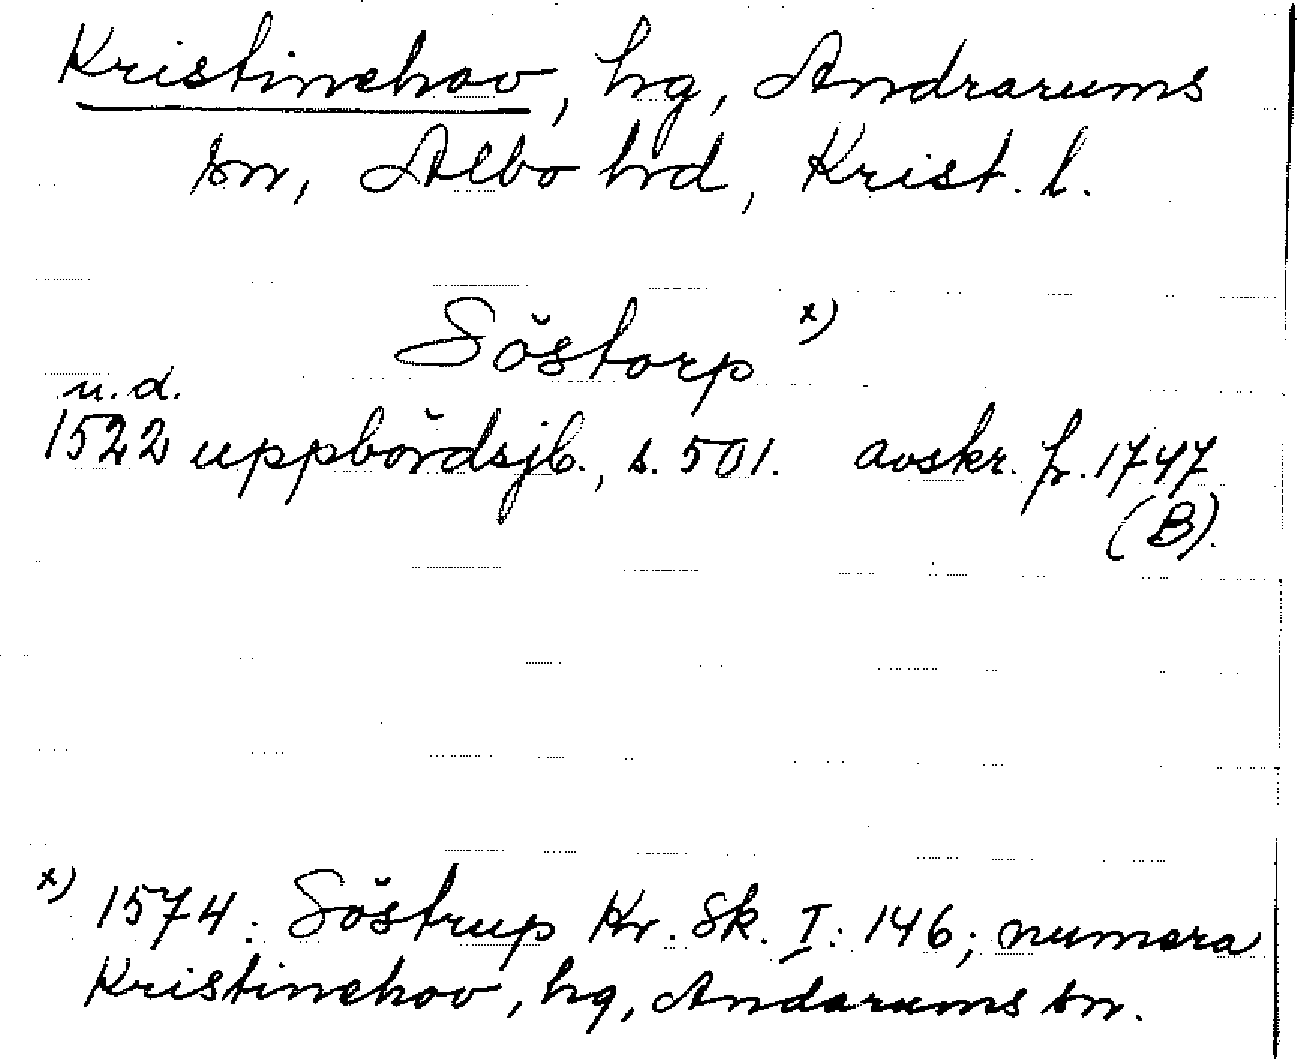 Kristinehov, hg, Andrarums
sn, Albo hd, Krist. l.
Söstorp x)
u.d.
1522 uppbördsjb., s. 501. avskr. fr. 1747
(B).
x) 1574: Söstrup Kr. Sk. I: 146; numera
Kristinehov, hg, Andarums sn.